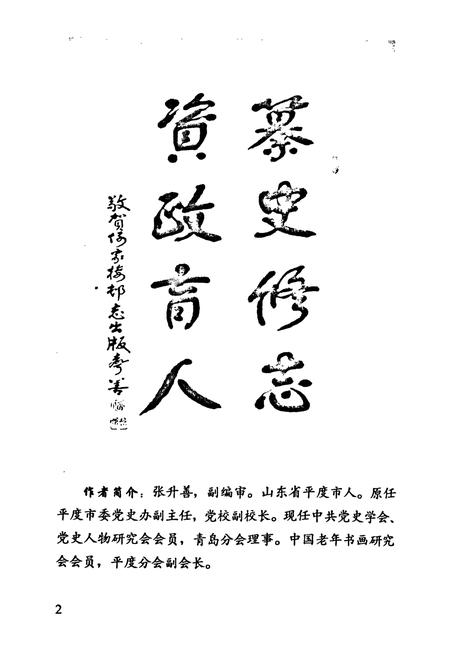 纂史修志
資政育人
敬贺家邨志出版善
作者简介：张升善，副编审。山东省平度市人。原任
平度市委党史办副主任，党校副校长。现任中共党史学会、
党史人物研究会会员，青岛分会理事。中国老年书画研究
会会员，平度分会副会长。
2